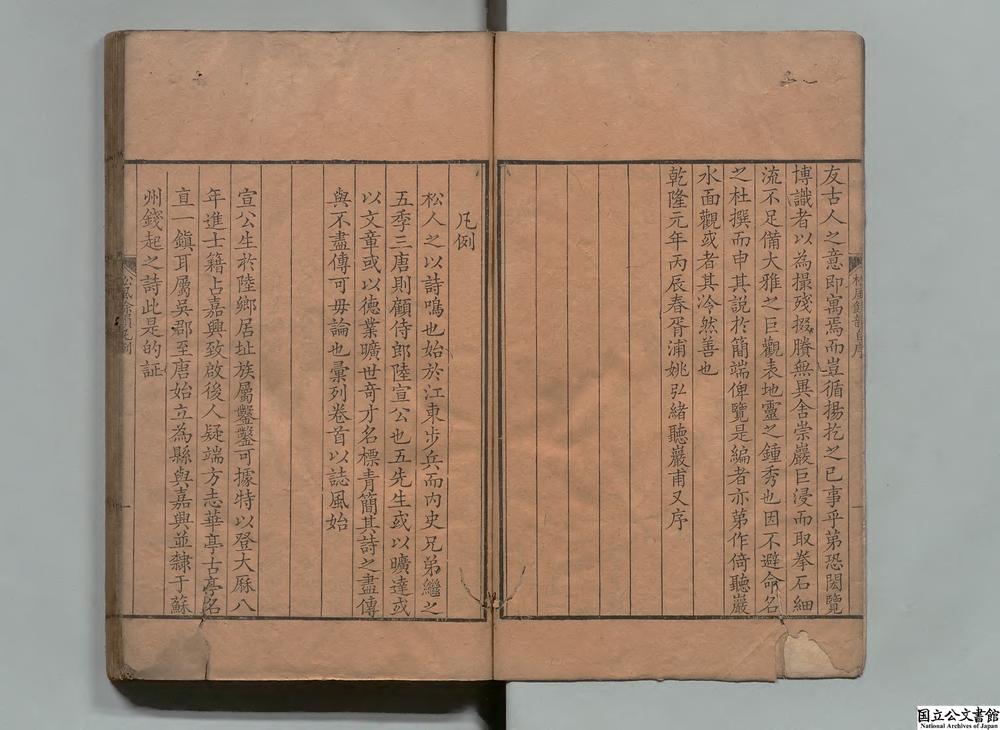 友古人之意即寓焉而豈循揚扢之已事乎第恐閎覽
博識者以為撮殘掇賸無異舍崇巖巨浸而取拳石細
流不足備大雅之巨觀表地靈之鍾秀也因不避命名
之杜撰而申其說於簡端俾覽是編者亦第作倚聽巖
水面觀或者其泠然善也
乾隆元年丙辰春胥浦姚弘緒聽巖甫又序
凡例
松人之以詩鳴也始於江東步兵而內史兄弟繼之
五季三唐則顧侍郎陸宣公也五先生或以曠達或
以文章或以德業曠世奇才名標青簡其詩之盡傳
與不盡傳可毋論也彙列卷首以誌風始
宣公生於陸鄉居址族屬鑿鑿可據特以登大厤八
年進士籍占嘉興致啟後人疑端方志華亭古亭名
直一鎮耳屬吳郡至唐始立為縣與嘉興並隸于蘇
州錢起之詩此是的証
松風餘韻自序
松風餘韻凡例
国立公文書館
National Archives of Japan